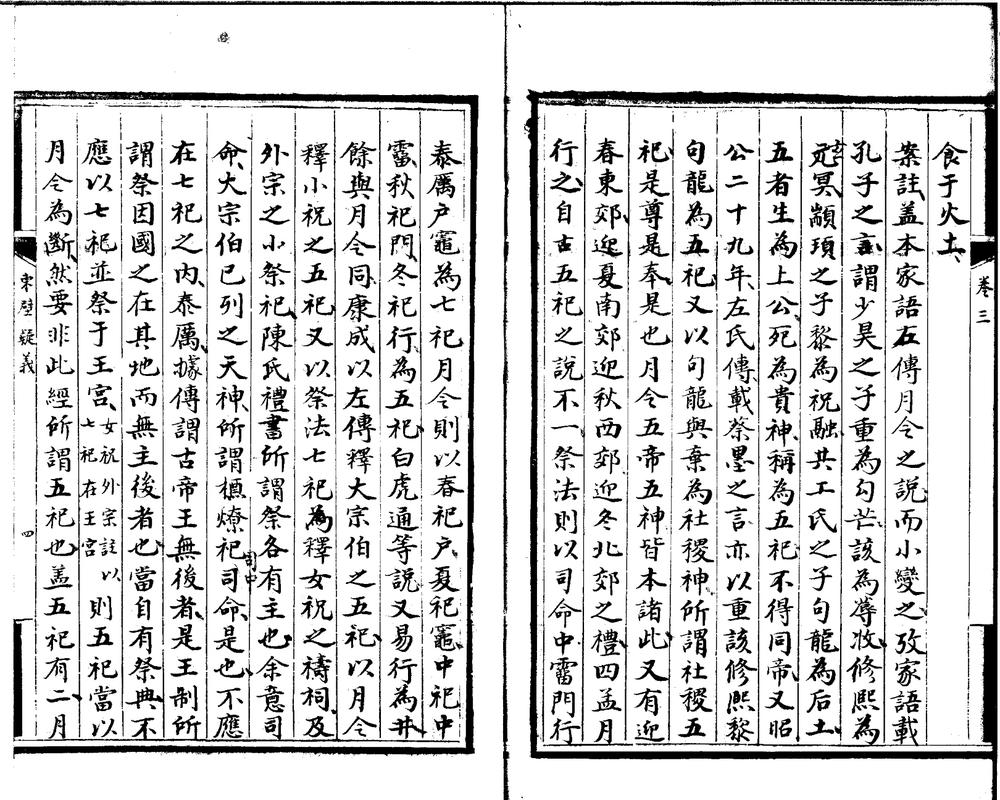 食于火土
案註蓋本家語左傳月令之說而小變之攷家語載
孔子之言謂少昊之子重為勾芒該為蓐收修熙為
玄冥顓頊之子黎為祝融共工氏之子句龍為后土
五者生為上公死為貴神稱為五祀不得同帝又昭
公二十九年左氏傳載蔡墨之言亦以重該修熙黎
句龍為五祀又以句龍與棄為社稷神所謂社稷五
祀是尊是奉是也月令五帝五神皆本諸此又有迎
春東郊迎夏南郊迎秋西郊迎冬北郊之禮四孟月
行之自古五祀之說不一祭法則以司命中霤門行
卷三
泰厲户竈為七祀月令則以春祀户夏祀竈中祀中
霤秋祀門冬祀行為五祀白虎通等說又易行為井
餘與月令同康成以左傳釋大宗伯之五祀以月令
釋小祝之五祀又以祭法七祀為釋女祝之禱祠及
外宗之小祭祀陳氏禮書所謂祭各有主也余意司
命大宗伯已列之天神所謂槱燎祀司中司命是也不應
在七祀之內泰厲據傳謂古帝王無後者是王制所
謂祭因國之在其地而無主後者也當自有祭典不
應以七祀並祭于王宮女祝外宗註以七祀在王宮則五祀當以
月令為斷然要非此經所謂五祀也蓋五祀有二月
東壁疑義
四